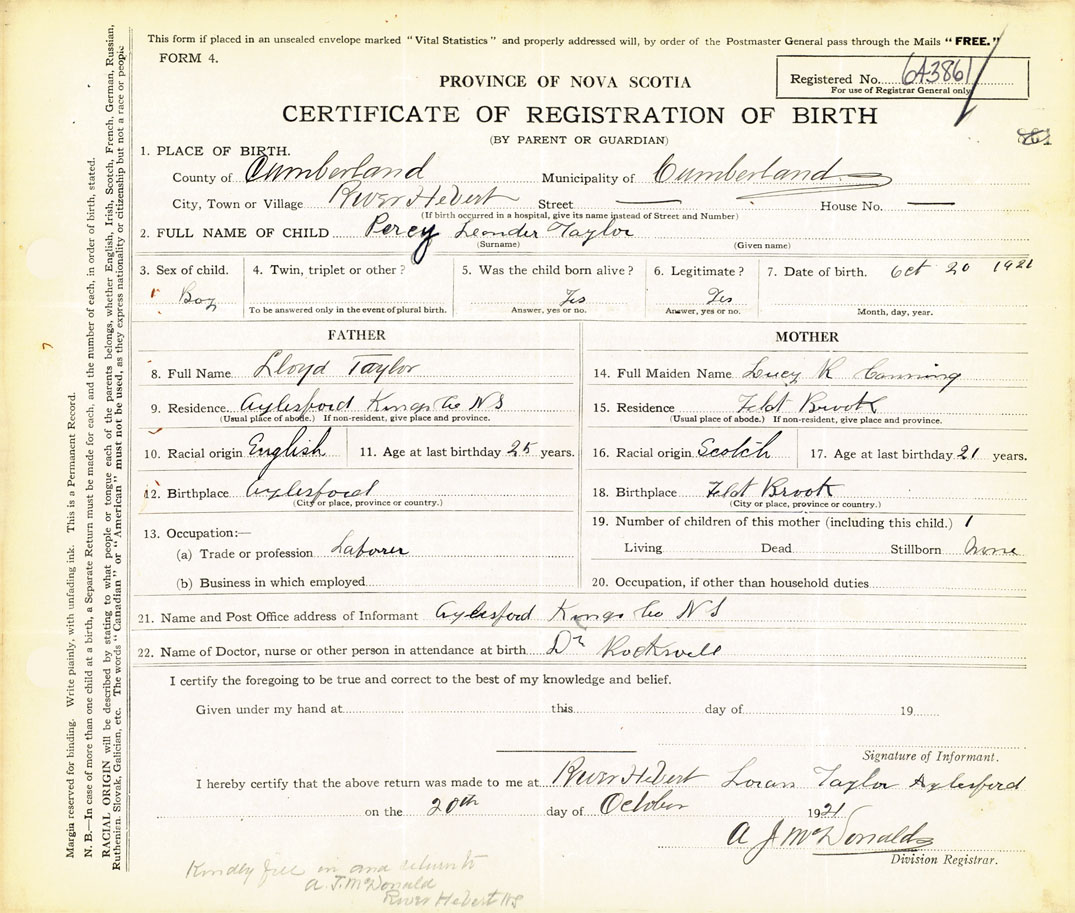 This form if placed in an unsealed envelope marked "Vital Statistics" and properly addressed will, by order of the Postmaster General pass through the Mails "FREE."
FORM 4.
Registered No. 643861
For use of Registrar General only
PROVINCE OF NOVA SCOTIA
CERTIFICATE OF REGISTRATION OF BIRTH
(BY PARENT OR GUARDIAN)
1. PLACE OF BIRTH.
County of Cumberland Municipality of Cumberland
City, Town or Village River Hebert Street — House No. —
(If birth occurred in a hospital, give its name instead of Street and Number)
2. FULL NAME OF CHILD Percy Leander Taylor
(Surname) (Given name)
3. Sex of child. 4. Twin, triplet or other? 5. Was the child born alive? 6. Legitimate? 7. Date of birth. Oct 20 1921
Boy Yes Yes
To be answered only in the event of plural birth. Answer, yes or no. Answer, yes or no. Month, day, year.
FATHER
8. Full Name Lloyd Taylor
9. Residence Aylesford Kings Co NS
(Usual place of abode.) If non-resident, give place and province.
10. Racial origin English 11. Age at last birthday 25 years.
12. Birthplace Aylesford
(City or place, province or country.)
13. Occupation:—
(a) Trade or profession Laborer
(b) Business in which employed
MOTHER
14. Full Maiden Name Lucy R Canning
15. Residence Brook
(Usual place of abode.) If non-resident, give place and province.
16. Racial origin Scotch 17. Age at last birthday 21 years.
18. Birthplace Brook
(City or place, province or country.)
19. Number of children of this mother (including this child.) 1
Living Dead Stillborn None
20. Occupation, if other than household duties
21. Name and Post Office address of Informant Aylesford Kings Co NS
22. Name of Doctor, nurse or other person in attendance at birth Dr Rockwell
I certify the foregoing to be true and correct to the best of my knowledge and belief.
Given under my hand at this day of 19
Signature of Informant.
I hereby certify that the above return was made to me at River Hebert Loran Taylor Aylesford
on the 20th day of October 1921
A J McDonald
Division Registrar.
Kindly fill in and return to
A. J. McDonald
River Hebert NS
Margin reserved for binding. Write plainly, with unfading ink. This is a Permanent Record.
N. B.—In case of more than one child at a birth, a Separate Return must be made for each, and the number of each, in order of birth, stated.
RACIAL ORIGIN will be described by stating to what people or tongue each of the parents belongs, whether English, Irish, Scotch, French, German, Russian,
Ruthenian, Slovak, Galician, etc. The words "Canadian" or "American" must not be used, as they express nationality or citizenship but not a race or people